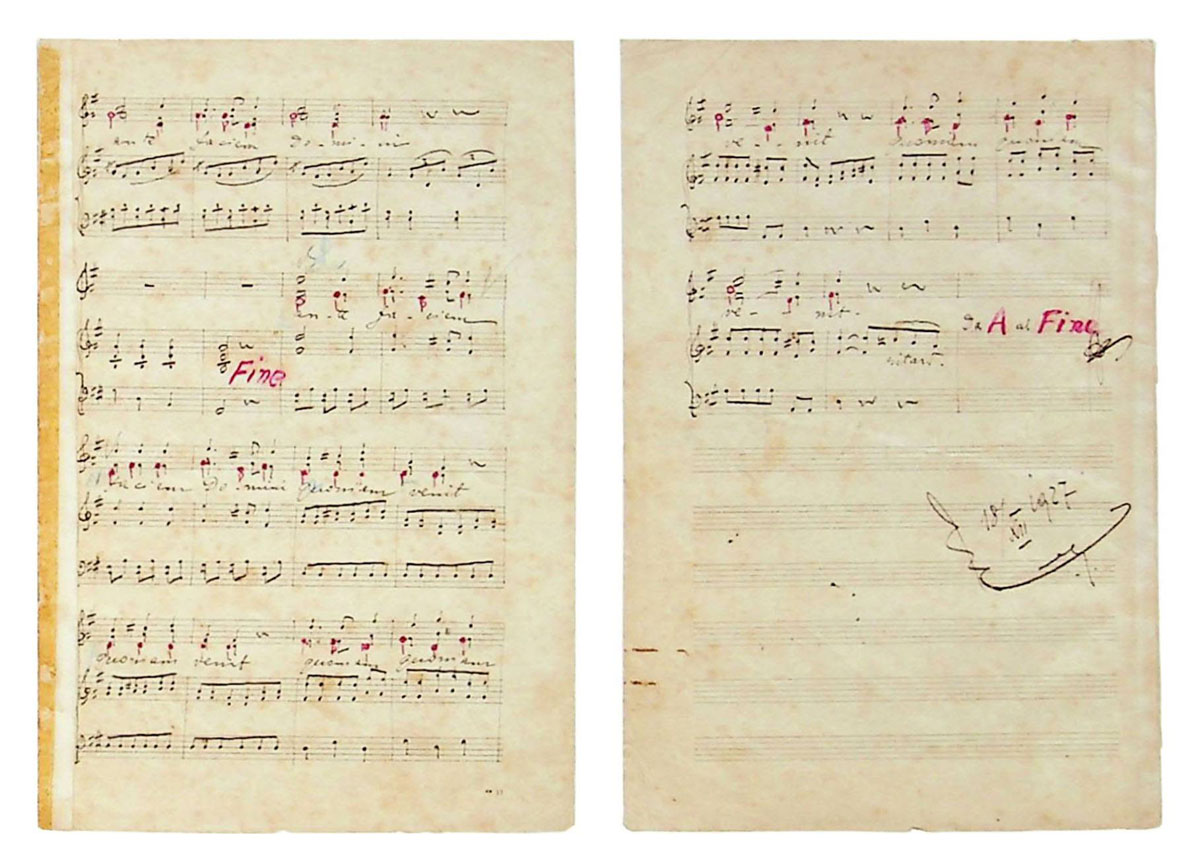 ante faciem Do-mi-ni
an-te fa-ciem
Fine
faciem Do-mini quoniam venit
quoniam venit quoniam quoniam
ve--nit quoniam quoniam
ve-- nit.
Da A al Fine
ritard.
18 XII 1927